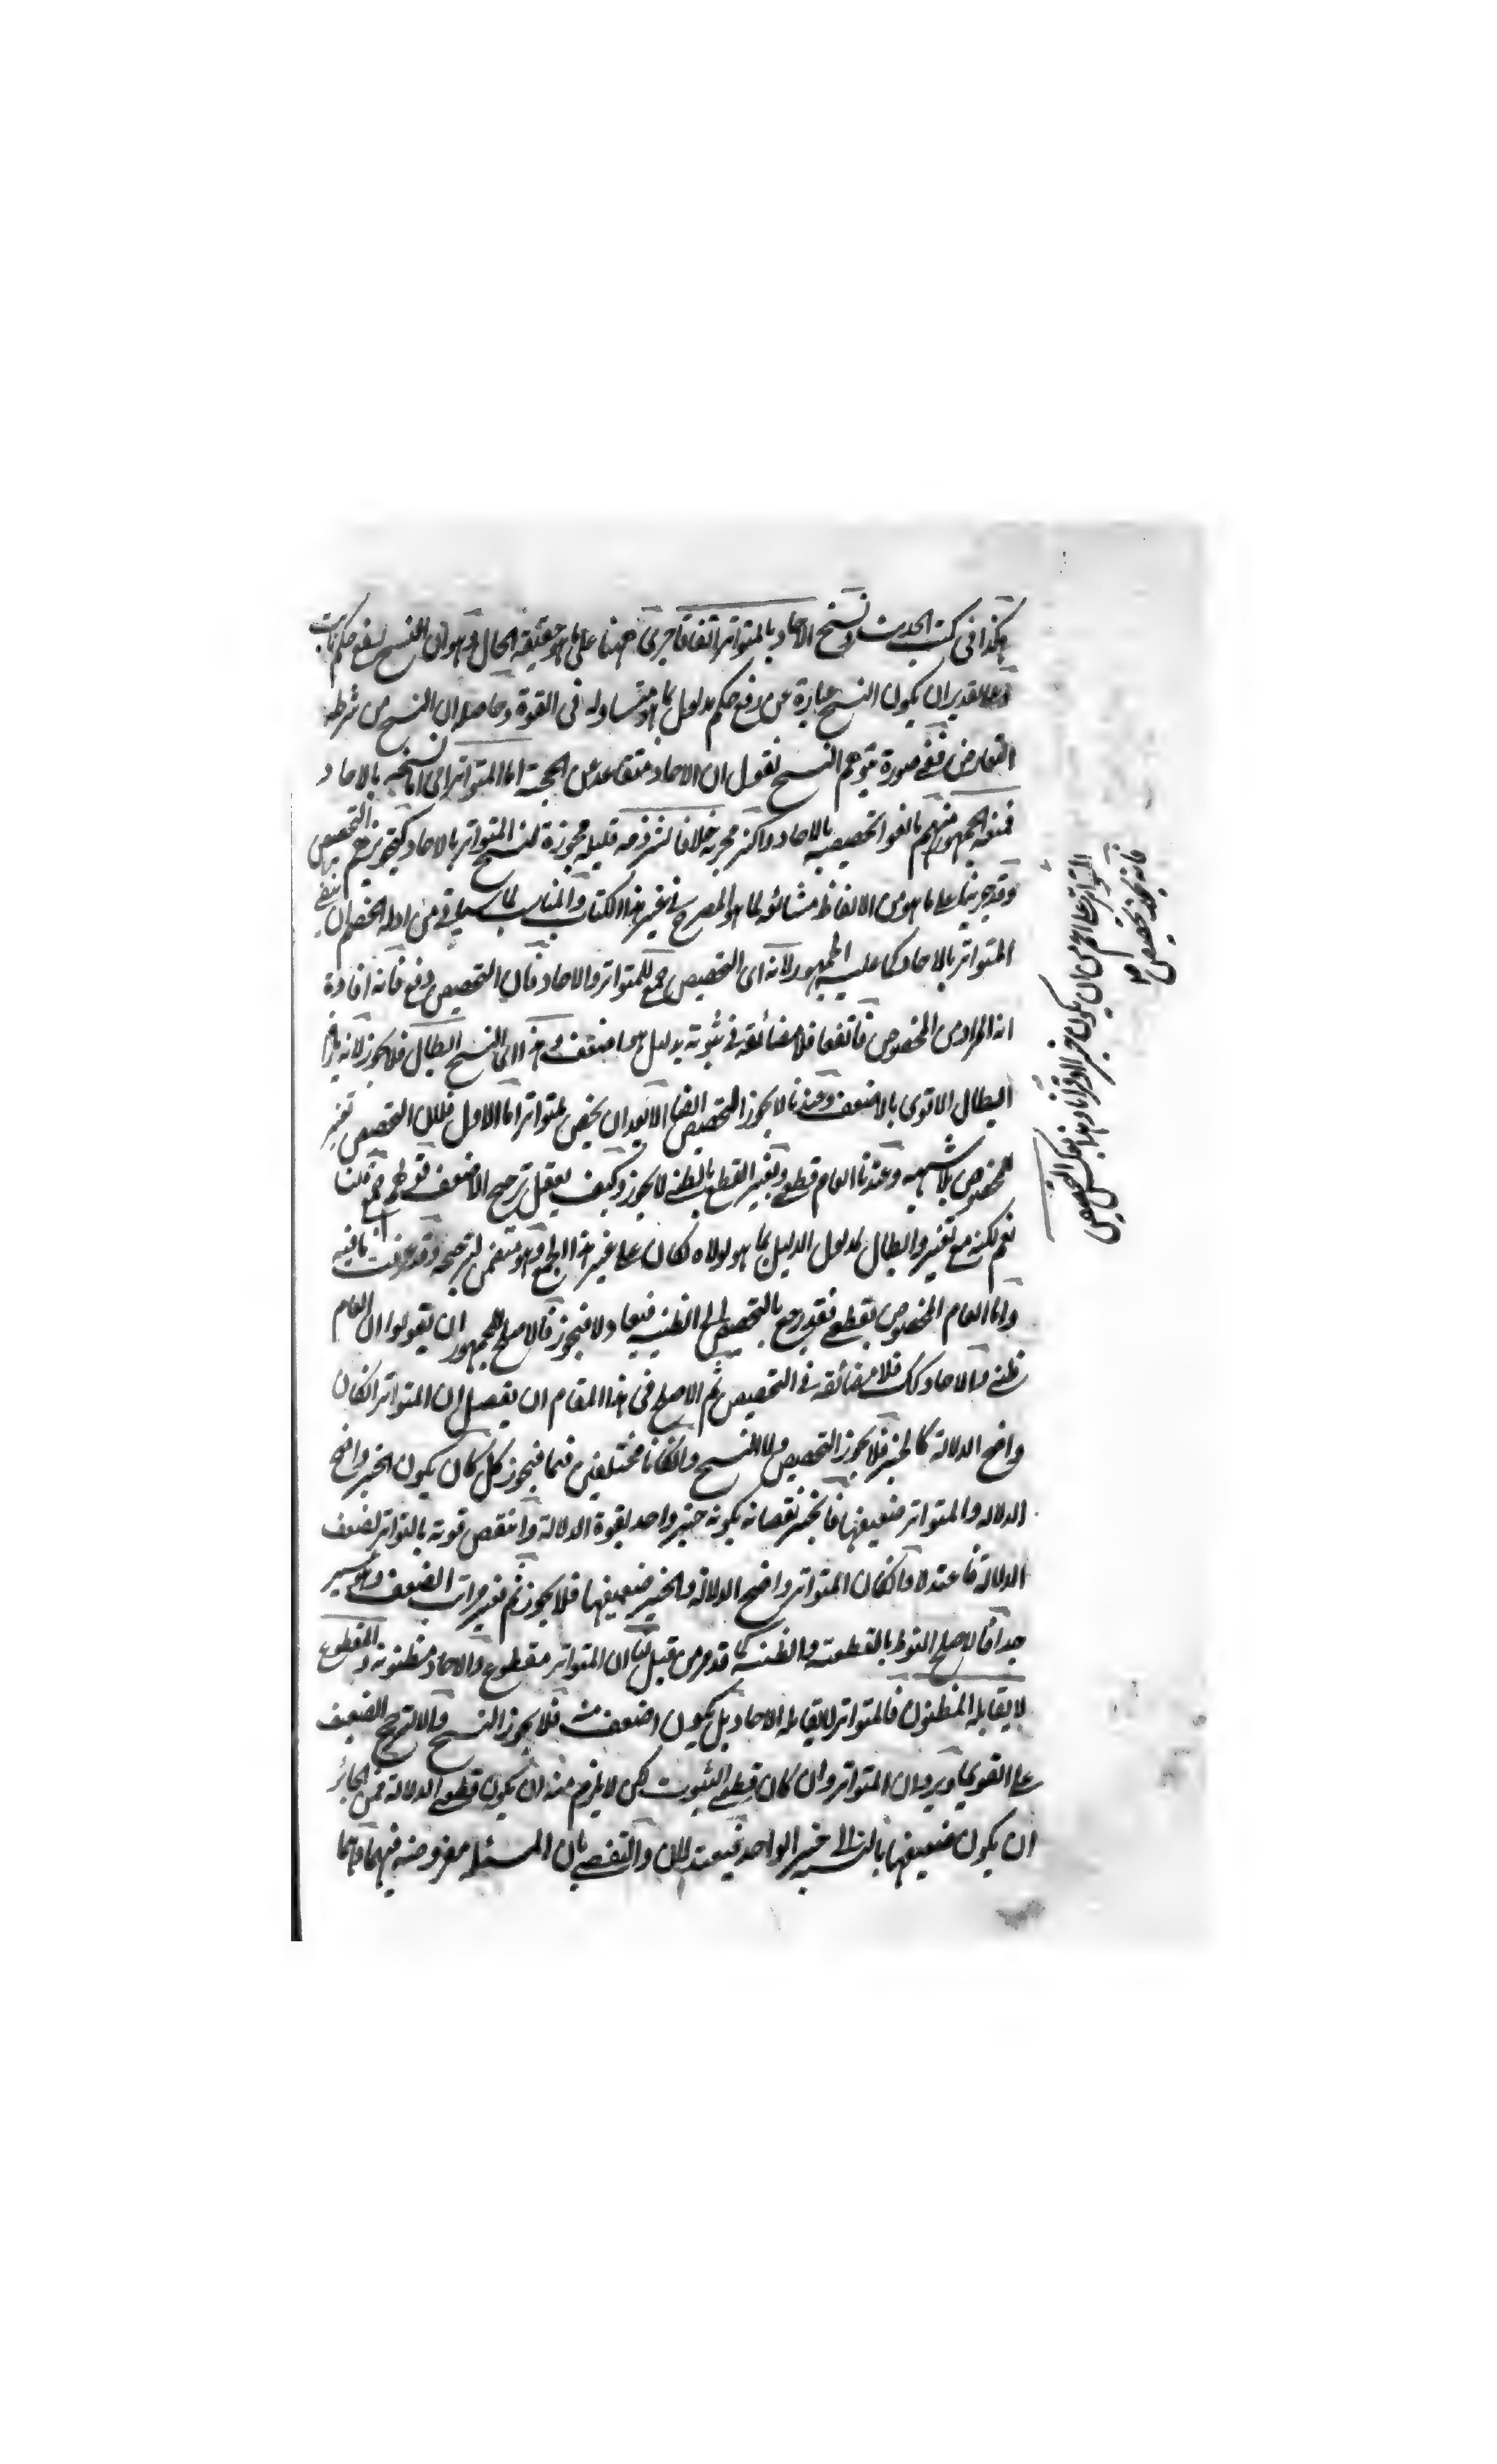 هكذا في كتب الحديث ونسخ الاحاد بالمتواتر اتفاقا جرى ههنا على ما هو حقيقة الحال وهو ان النسخ رفع حكم ثابت
وعلى تقدير ان يكون النسخ عبارة عن رفع حكم مدلول بما هو متساو له في القوة وحاصله ان النسخ من شرطه
التعارض ففي صورة توهم النسخ نقول ان الاحاد متقاعد عن الحجية اما المتواتر اي اما نسخه بالاحاد
فمنعه الجمهور منهم مانعوا تخصيصه بالاحاد واكثر مجوزيه خلافا لشرذمة قليلة مجوزة لنسخ المتواتر بالاحاد كتجويزهم التخصيص بها
وقد جرينا على ما هو من الالفاظ لما هو المصرح في غير هذا الكتاب والمناسب لما سياتي من ادلة الخصم
المتواتر بالاحاد كما عليه الجمهور لانه اي التخصيص جمع للمتواتر والاحاد فان التخصيص دفع فانه افادة
انه المراد من المخصوص فاتفقا فلا مضائقة في ثبوته بدليل هو اضعف وهذا اي النسخ ابطال فلا يجوز لانه
ابطال الاقوى بالاضعف وعندنا لا يجوز التخصيص ايضا الا بعد ان يخص بمتواتر اما الاول فلان التخصيص تغيير
للمخصوص بلا شبهة وعندنا العام قطعي وتغيير القطع بالظني لا يجوز وكيف يعقل ترجيح الاضعف جمع قلنا
نعم لكنه مع تغيير وابطال لمدلول الدليل بما هو لولاه لكان على غير هذا الجمع وهو متضمن لترجيحه وقد عرفت ما فيه
واما العام المخصوص بقطعي فقد رجع بالتخصيص الى الظنية فيجوز فالاصلح للجمهور ان يقولوا ان العام
ظني والاحاد كك فلا مضائقة في التخصيص ثم الاصلح في هذا المقام ان يفصل ان المتواتر ان كان
واضح الدلالة كالخبر فلا يجوز التخصيص ولا النسخ وان كانا مختلفين فيهما فيجوز كل كان يكون الخبر واضح
الدلالة والمتواتر ضعيفها فانجبر نقصانه بكونه خبر واحد لقوة الدلالة وانتقص قوته بالتواتر لضعف
الدلالة فاعتدلا وان كان المتواتر واضح الدلالة والخبر ضعيفها فلا يجوز ثم تغيير مراتب الضعف عسير
جدا فالاصلح النوط بالقطعية والظنية كما قد مر من قبل لنا ان المتواتر مقطوع والاحاد مظنونة والمقطوع
لا يقابله المظنون فالمتواتر لا يقابله الاحاد بل يكون اضعف منه فلا يجوز النسخ والا لترجح الضعيف
على القوي اويرد ان المتواتر وان كان قطعي الثبوت لكن لا يلزم منه ان يكون قطعي الدلالة فمن الجائز
ان يكون ضعيفها بالنسبة الى خبر الواحد فيعتدلان والتفصي بان المسئلة مفروضة فيهما
فانه يجوز تخصيص
المتواتر على اعم من ان يكون خبرا او قرانا وهذا بعكس التخصيص